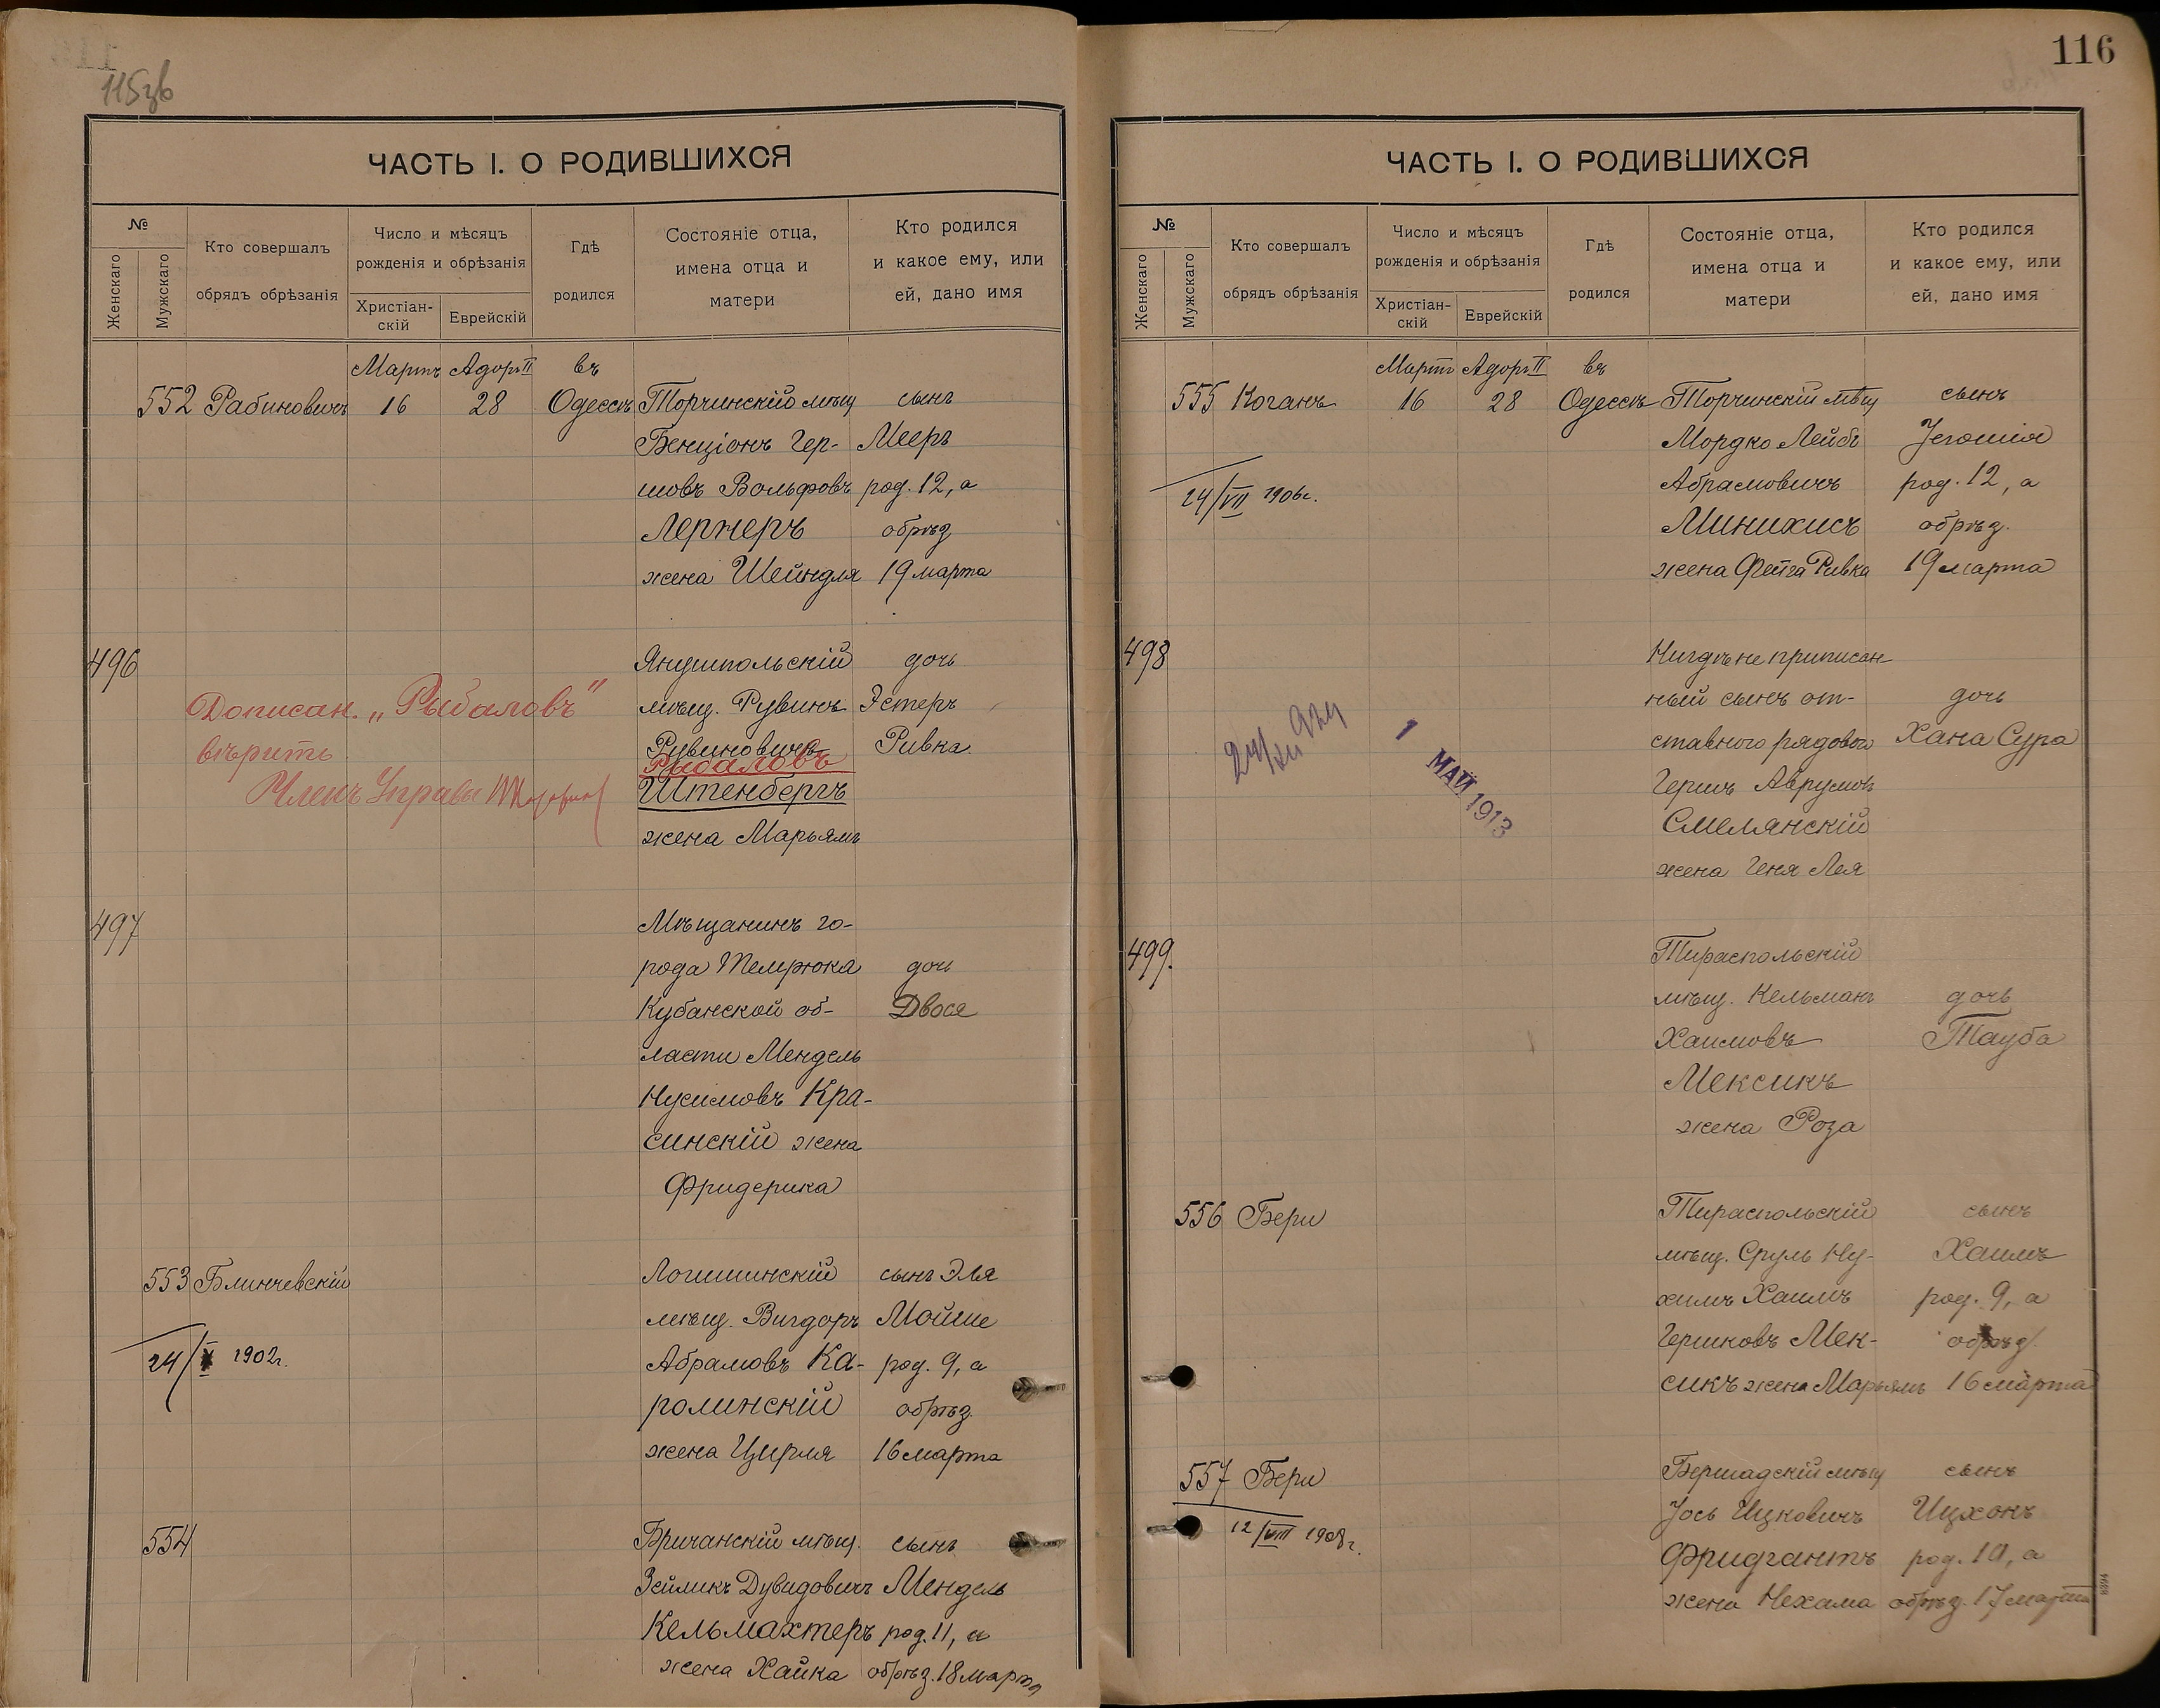 115зв
ЧАСТЬ I. О РОДИВШИХСЯ
№
Женскаго
Мужскаго
Кто совершалъ
обрядъ обрѣзанія
Число и мѣсяцъ
рожденія и обрѣзанія
Христіан-
скій
Еврейскій
Гдѣ
родился
Состояніе отца,
имена отца и
матери
Кто родился
и какое ему, или
ей, дано имя
Мартъ Адоръ II въ
552 Рабиновичъ 16 28 Одессѣ Торчинскій мѣщ сынъ
Бенціонъ Гер- Мееръ
шовъ Вольфовъ род. 12, а
Лернеръ обрѣз
жена Шейндля 19 марта
496 Янушпольскій дочь
мѣщ. Рувинъ Эстеръ
Рувиновичъ Ривка
Рыбаловъ
Штенбергъ
жена Марьямъ
Дописан. „Рыбаловъ"
вѣрить
Членъ Управы
497 Мѣщанинъ го-
рода Темрюка дочь
Кубанской об- Двося
ласти Мендель
Нусимовъ Кра-
синскій жена
Фридерика
553 Блинчевскій Логишинскій сынъ Эля
мѣщ. Вигдоръ Мойше
24/X 1902г. Абрамовъ Ка- род. 9, а
ролинскій обрѣз.
жена Цирля 16 марта
554 Бричанскій мѣщ. сынъ
Зейликъ Дувидовичъ Мендель
Кельмахтеръ род. 11, а
жена Хайка обрѣз. 18 марта
116
ЧАСТЬ I. О РОДИВШИХСЯ
№
Женскаго
Мужскаго
Кто совершалъ
обрядъ обрѣзанія
Число и мѣсяцъ
рожденія и обрѣзанія
Христіан-
скій
Еврейскій
Гдѣ
родился
Состояніе отца,
имена отца и
матери
Кто родился
и какое ему, или
ей, дано имя
Мартъ Адоръ II въ
555 Коганъ 16 28 Одессѣ Торчинскій мѣщ сынъ
Мордко Лейбъ Іегошія
24/VII 1906г. Абрамовичъ род. 12, а
Минихисъ обрѣз.
жена Фейга Ривка 19 марта
498 Нигдѣ не приписан-
ный сынъ от- дочь
ставного рядового Хана Сура
Гершъ Аврумовъ
Смелянскій
жена Геня Лея
1 МАЙ 1913
499. Тираспольскій
мѣщ. Кельманъ дочь
Хаимовъ Тауба
Мексикъ
жена Роза
556 Бери Тираспольскій сынъ
мѣщ. Сруль Ну- Хаимъ
химъ Хаимъ род. 9, а
Гершковъ Мек- обрѣз.
сикъ жена Марьямъ 16 марта
557 Бери Бершадскій мѣщ сынъ
Іось Ицковичъ Ицхокъ
12/VIII 1908г. Фридгантъ род. 10, а
жена Нехама обрѣз. 17 марта